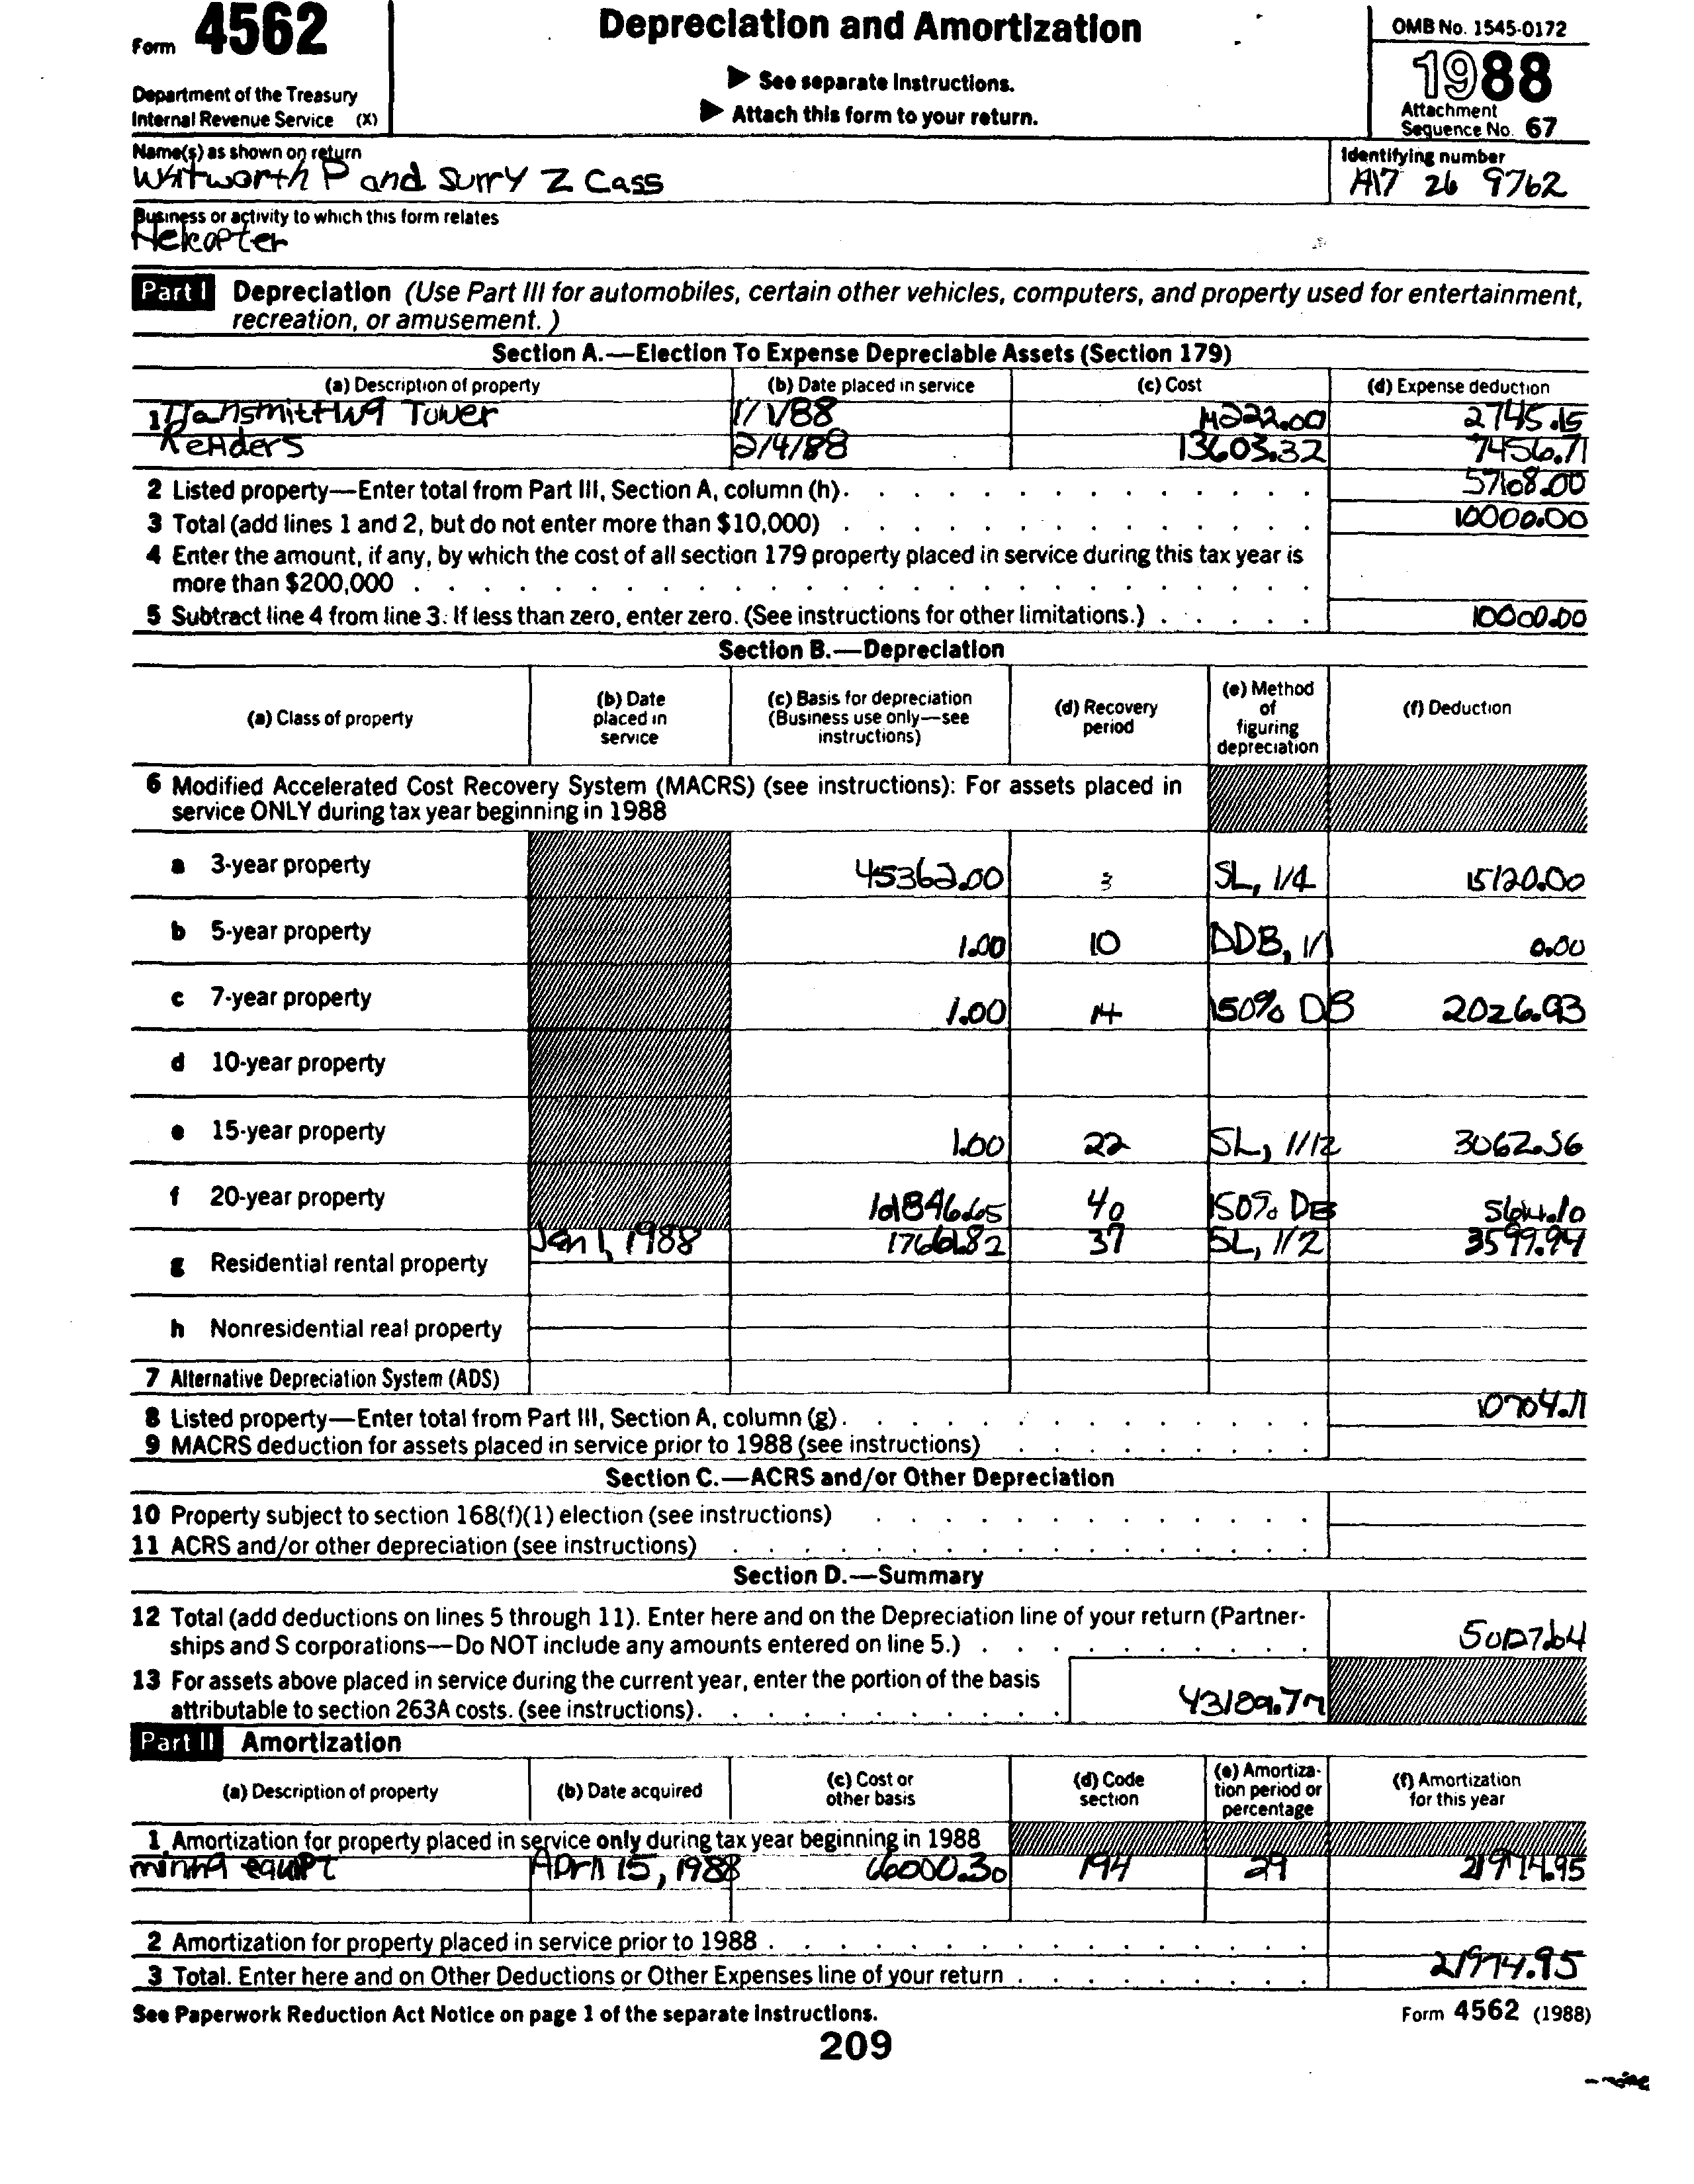 Form 4562
Department of the Treasury
Internal Revenue Service (X)
Depreciation and Amortization
▶ See separate Instructions.
▶ Attach this form to your return.
OMB No. 1545-0172
1988
Attachment
Sequence No. 67
Name(s) as shown on return
Whitworth P and Surry Z Cass
Identifying number
26 9762
Business or activity to which this form relates
Part I Depreciation (Use Part III for automobiles, certain other vehicles, computers, and property used for entertainment,
recreation, or amusement.)
Section A.—Election To Expense Depreciable Assets (Section 179)
(a) Description of property (b) Date placed in service (c) Cost (d) Expense deduction
1 Transmitting Tower 1/1/88 14222.00 2745.15
2/4/88 13603.32 7456.71
2 Listed property—Enter total from Part III, Section A, column (h). 5768.00
3 Total (add lines 1 and 2, but do not enter more than $10,000) 10000.00
4 Enter the amount, if any, by which the cost of all section 179 property placed in service during this tax year is
more than $200,000
5 Subtract line 4 from line 3. If less than zero, enter zero. (See instructions for other limitations.) 10000.00
Section B.—Depreciation
(a) Class of property (b) Date placed in service (c) Basis for depreciation (Business use only—see instructions) (d) Recovery period (e) Method of figuring depreciation (f) Deduction
6 Modified Accelerated Cost Recovery System (MACRS) (see instructions): For assets placed in
service ONLY during tax year beginning in 1988
a 3-year property 45362.00 3 SL, 1/4 15120.00
b 5-year property 1.00 10 DDB, 1/1 0.00
c 7-year property 1.00 14 150% DB 2026.93
d 10-year property
e 15-year property 1.00 22 SL, 1/12 3062.56
f 20-year property 101846.65 40 150% DB 5614.10
Jan 1, 1988 37 SL, 1/2 3599.94
g Residential rental property
h Nonresidential real property
7 Alternative Depreciation System (ADS)
8 Listed property—Enter total from Part III, Section A, column (g). 10704.11
9 MACRS deduction for assets placed in service prior to 1988 (see instructions)
Section C.—ACRS and/or Other Depreciation
10 Property subject to section 168(f)(1) election (see instructions)
11 ACRS and/or other depreciation (see instructions)
Section D.—Summary
12 Total (add deductions on lines 5 through 11). Enter here and on the Depreciation line of your return (Partner-
ships and S corporations—Do NOT include any amounts entered on line 5.) 50127.64
13 For assets above placed in service during the current year, enter the portion of the basis
attributable to section 263A costs. (see instructions). 43189.77
Part II Amortization
(a) Description of property (b) Date acquired (c) Cost or other basis (d) Code section (e) Amortiza-tion period or percentage (f) Amortization for this year
1 Amortization for property placed in service only during tax year beginning in 1988
mining equipt April 15, 1988 66000.30 194 29 21974.95
2 Amortization for property placed in service prior to 1988
3 Total. Enter here and on Other Deductions or Other Expenses line of your return 21974.95
See Paperwork Reduction Act Notice on page 1 of the separate Instructions.
Form 4562 (1988)
209